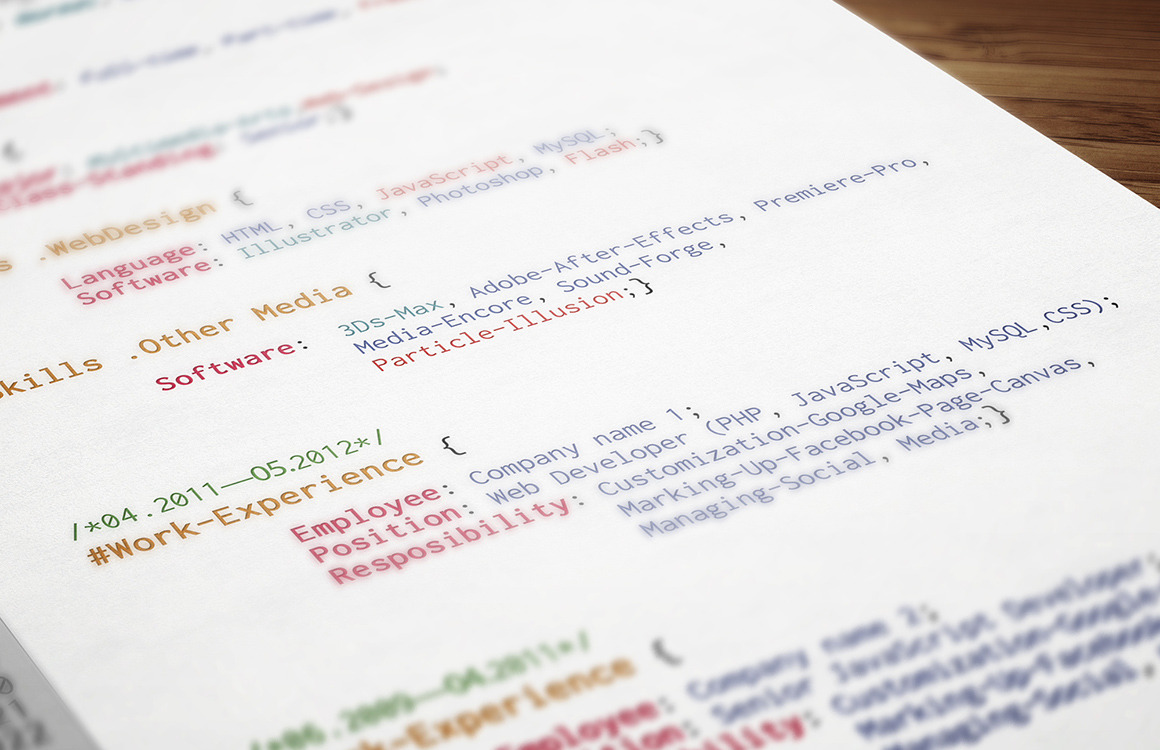 Full-time, Part-time,
{
Class-Standing: Senior;}
s .WebDesign {
Language: HTML, CSS, JavaScript, MySQL;
Software: Illustrator, Photoshop, Flash;}
skills .Other Media {
Software: 3Ds-Max, Adobe-After-Effects, Premiere-Pro,
Media-Encore, Sound-Forge,
Particle-Illusion;}
/*04.2011—05.2012*/
#Work-Experience {
Employee: Company name 1;
Position: Web Developer (PHP, JavaScript, MySQL,CSS);
Resposibility: Customization-Google-Maps,
Marking-Up-Facebook-Page-Canvas,
Managing-Social, Media;}
/*06.2009—04.2011*/
rk-Experience {
Employee: Company name 2;
tion: Senior JavaScript Developer;
bility: Customization-Google-
Marking-Up-Facebook
Managing-Social,